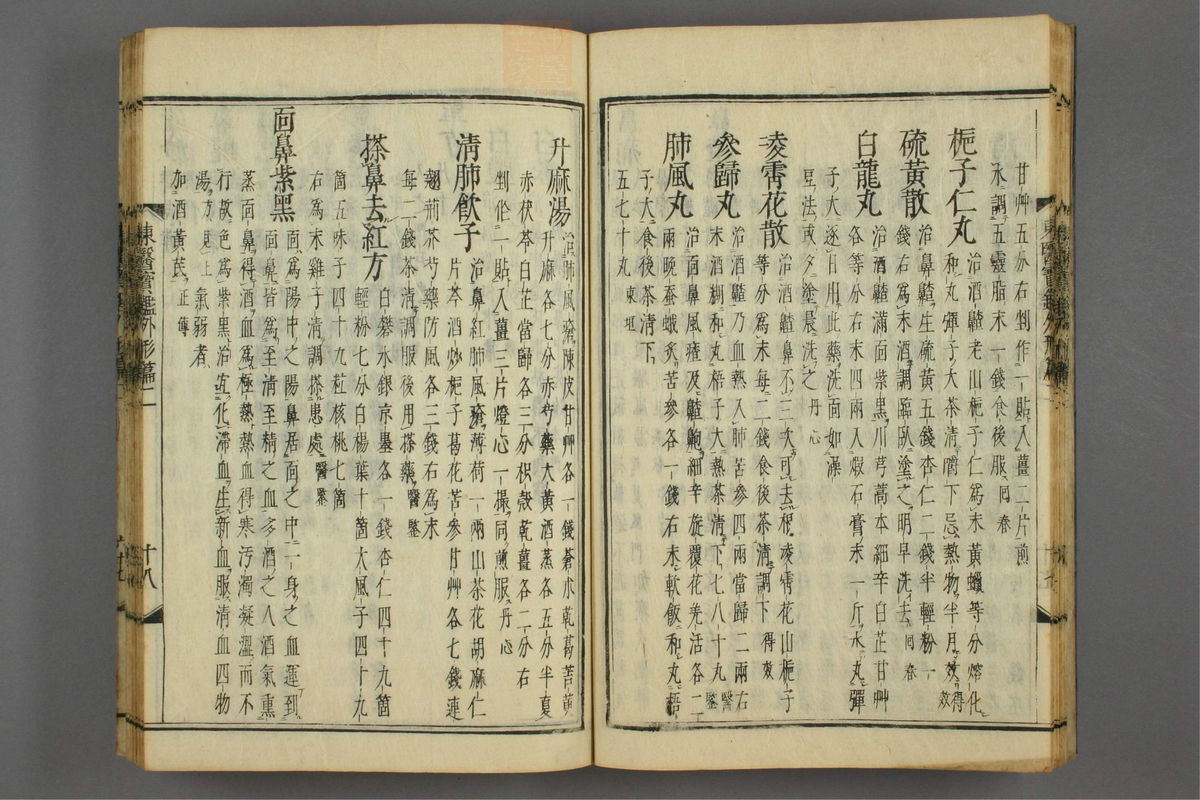 甘艸五分右剉作一貼入薑二片煎
水調五靈脂末一錢食後服回春
梔子仁丸治酒齄鼻老山梔子仁爲末黃蠟等分熔化
和丸彈子大茶清嚼下忌熱物半月效得效
硫黃散治鼻齄生硫黃五錢杏仁二錢半輕粉一
錢右爲末酒調臨臥塗之明早洗去回春
白龍丸治酒齄滿面紫黑川芎蒿本細辛白芷甘艸
各等分右爲末四兩入煆石膏末一斤水丸彈
子大逐日用此藥洗面如澡
豆法或夕塗晨洗之丹心
凌霄花散治酒齄鼻不三次可去根凌霄花山梔子
等分爲末每二錢食後茶清調下得效
參歸丸治酒齄乃血熱入肺苦參四兩當歸二兩右
末酒糊和丸梧子大熱茶清下七八十丸醫鑒
肺風丸治面鼻風瘡及齄皰細辛旋覆花羌活各二
兩晚蚕蛾炙苦參各一錢右末軟飯和丸梧
子大食後茶清下
五七十丸東垣
升麻湯治肺風瘡陳皮甘艸各一錢蒼朮乾葛苦黃
升麻各七分赤芍藥大黃酒蒸各五分半夏
赤茯苓白芷當歸各三分枳殼乾薑各二分右
剉作一貼入薑三片燈心一撮同煎服丹心
清肺飮子治鼻紅肺風瘡薄荷一兩山茶花胡麻仁
片芩酒炒梔子葛花苦參甘艸各七錢連
翹荊芥芍藥防風各三錢右爲末
每二錢茶清調服後用搽藥醫鑒
搽鼻去紅方白礬水銀京墨各一錢杏仁四十九箇
輕粉七分白楊葉十箇大風子四十九
箇五味子四十九粒核桃七箇
右爲末雞子清調搽患處醫鑒
面鼻紫黑面爲陽中之陽鼻居面之中一身之血運到
面鼻皆爲至清至精之血多酒之人酒氣熏
蒸面鼻得酒血爲極熱熱血得寒汚濁凝澀而不
行故色爲紫黑治宜化滯血生新血服清血四物
湯方見上氣弱者
加酒黃芪正傳
東醫寶鑑外形篇二
十八